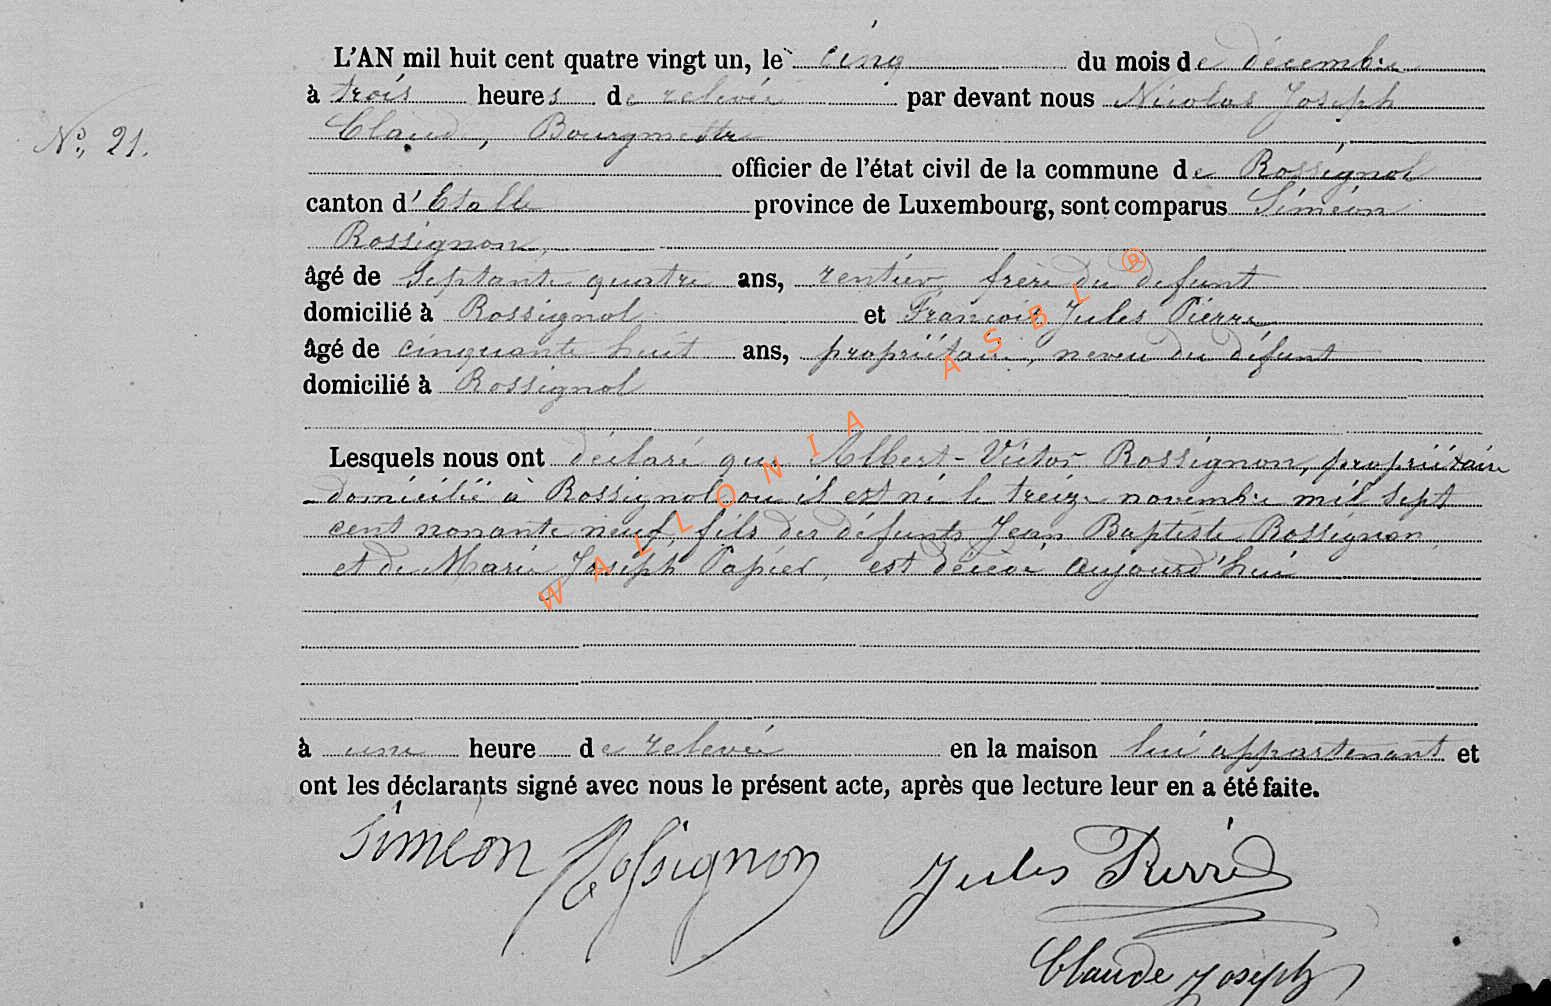 L'AN mil huit cent quatre vingt un, le cinq du mois de décembre
à trois heures de relevée par devant nous Nicolas Joseph
N° 21.
Claude, Bourgmestre
officier de l'état civil de la commune de Rossignol
canton d'Etalle province de Luxembourg, sont comparus Siméon
Rossignon,
âgé de Septante quatre ans, rentier frère du défunt
domicilié à Rossignol et François Jules Pierre
âgé de cinquante huit ans, propriétaire, neveu du défunt
domicilié à Rossignol
Lesquels nous ont déclaré que Albert-Victor Rossignon, propriétaire
domicilié à Rossignol ou il est né le treize novembre mil sept
cent nonante neuf fils des défunts Jean Baptiste Rossignon,
et de Marie Joseph Papier, est décédé aujourd'hui
à une heure de relevée en la maison lui appartenant et
ont les déclarants signé avec nous le présent acte, après que lecture leur en a été faite.
Siméon Rossignon Jules Pierre
Claude Joseph
WALLONIA ASBL ®